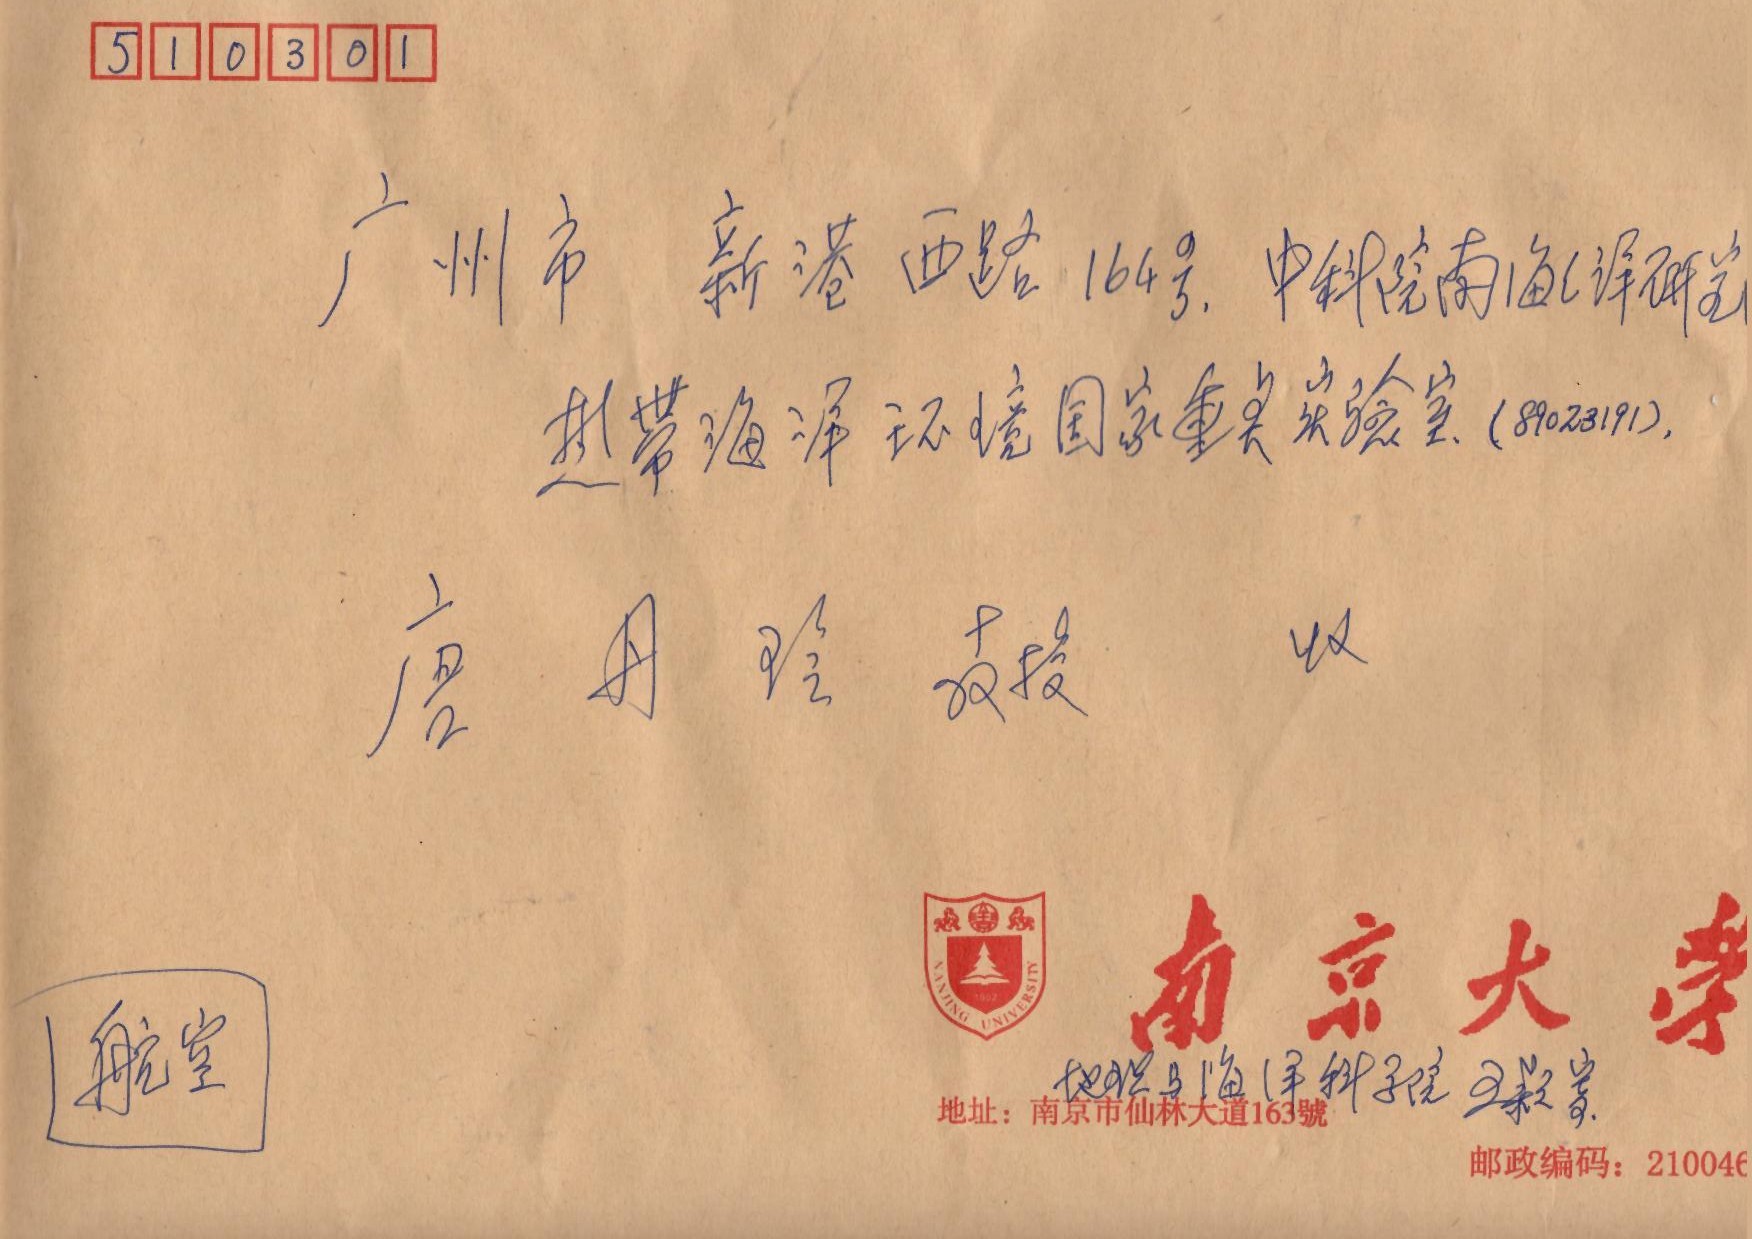 510301
广州市 新港西路 164号. 中科院南海海洋研究
热带海洋环境国家重点实验室. (89023191).
唐 丹 玲 教授 收
NANJING UNIVERSITY
1902
南京大学
地理与海洋科学院 王颖寄.
地址：南京市仙林大道163號
邮政编码：210046
航空